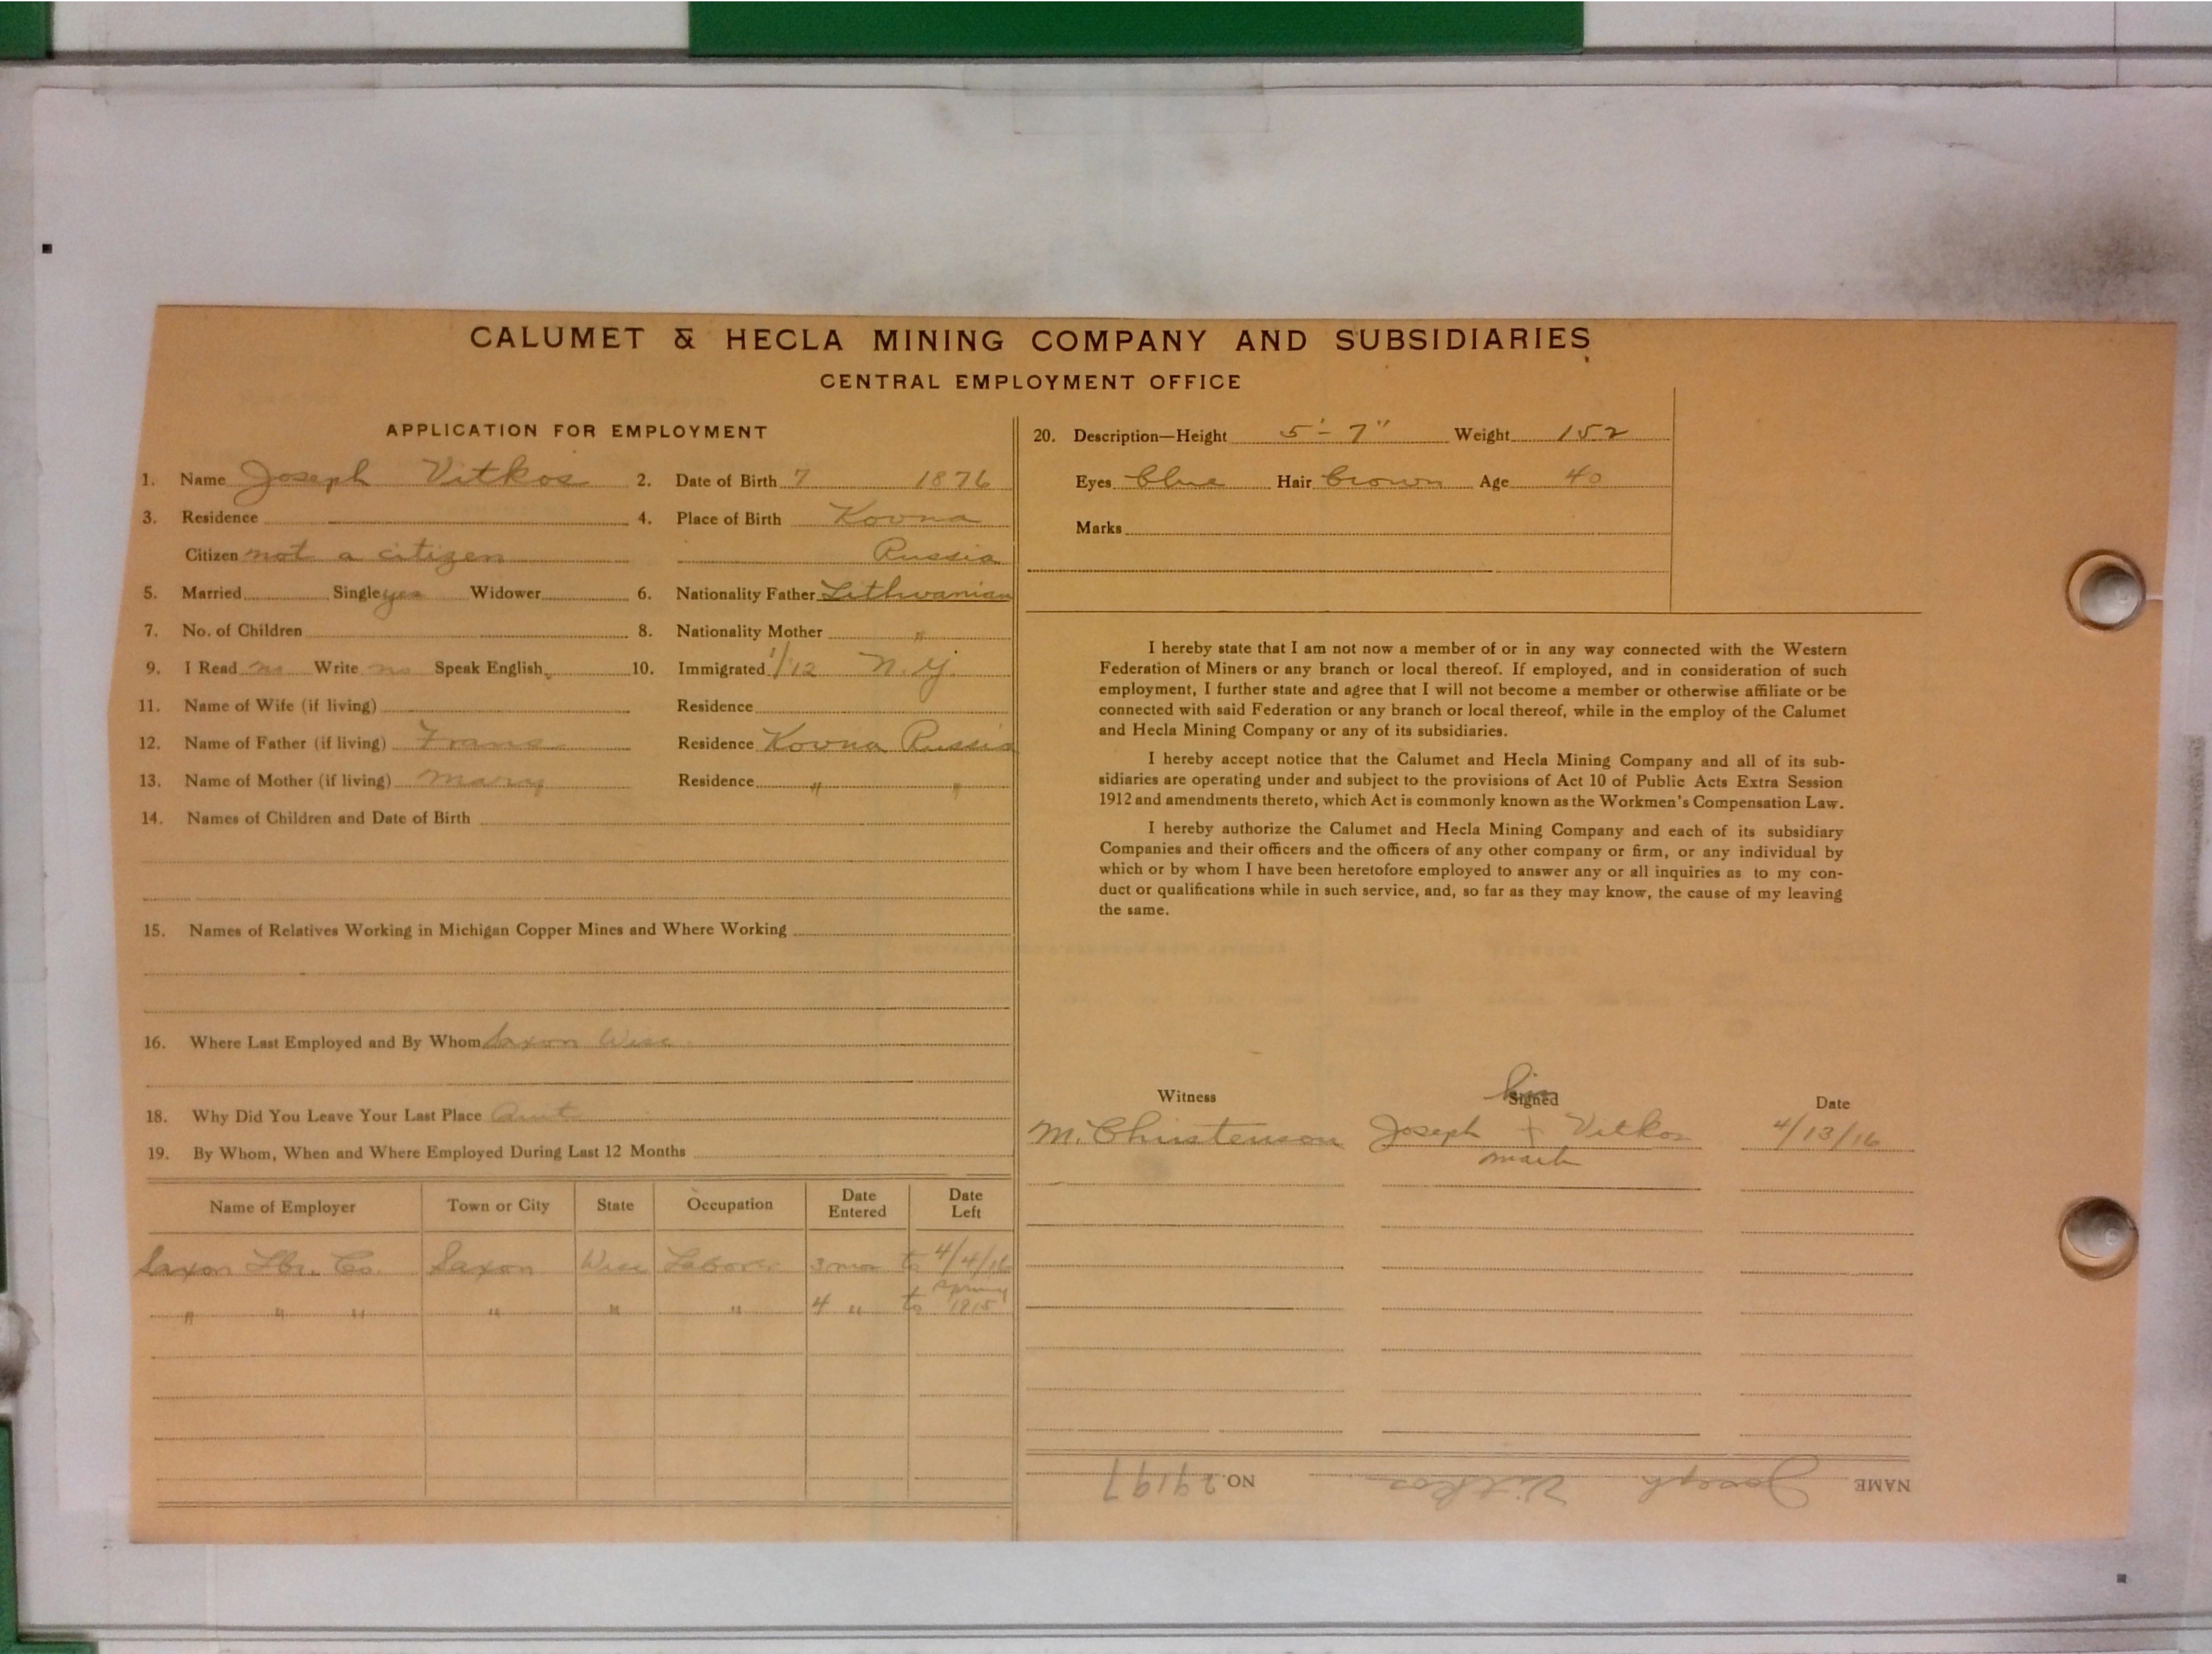 CALUMET & HECLA MINING COMPANY AND SUBSIDIARIES
CENTRAL EMPLOYMENT OFFICE
APPLICATION FOR EMPLOYMENT
1. Name Joseph Vitkos 2. Date of Birth 7 1876
3. Residence 4. Place of Birth Kovna
Citizen not a citizen Russia
5. Married Single yes Widower 6. Nationality Father Lithuanian
7. No. of Children 8. Nationality Mother "
9. I Read no Write no Speak English 10. Immigrated 1/12 N.Y.
11. Name of Wife (if living) Residence
12. Name of Father (if living) Frans Residence Kovna Russia
13. Name of Mother (if living) Mary Residence " "
14. Names of Children and Date of Birth
15. Names of Relatives Working in Michigan Copper Mines and Where Working
16. Where Last Employed and By Whom Saxon Wisc
18. Why Did You Leave Your Last Place
19. By Whom, When and Where Employed During Last 12 Months
Name of Employer Town or City State Occupation Date Entered Date Left
Saxon Lbr. Co. Saxon Wisc Laborer 3 mos to 4/4/16
" " " " " " 4 " to spring 1915
20. Description—Height 5'-7" Weight 152
Eyes blue Hair brown Age 40
Marks
I hereby state that I am not now a member of or in any way connected with the Western
Federation of Miners or any branch or local thereof. If employed, and in consideration of such
employment, I further state and agree that I will not become a member or otherwise affiliate or be
connected with said Federation or any branch or local thereof, while in the employ of the Calumet
and Hecla Mining Company or any of its subsidiaries.
I hereby accept notice that the Calumet and Hecla Mining Company and all of its sub-
sidiaries are operating under and subject to the provisions of Act 10 of Public Acts Extra Session
1912 and amendments thereto, which Act is commonly known as the Workmen's Compensation Law.
I hereby authorize the Calumet and Hecla Mining Company and each of its subsidiary
Companies and their officers and the officers of any other company or firm, or any individual by
which or by whom I have been heretofore employed to answer any or all inquiries as to my con-
duct or qualifications while in such service, and, so far as they may know, the cause of my leaving
the same.
Witness Signed his Date
M. Christenson Joseph + Vitkos 4/13/16
mark
NAME Joseph Vitkos NO. 29197